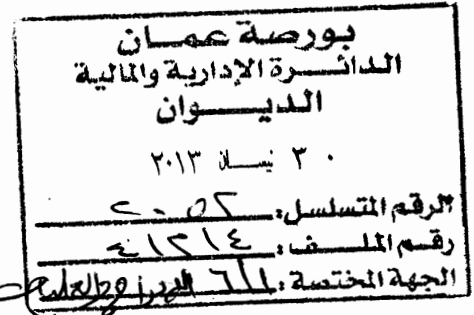 بورصة عمان
الدائرة الإدارية والمالية
الديوان
٣٠ نيسان ٢٠١٣
الرقم المتسلسل:
رقم الملف: ٤١٢١٤
الجهة المختصة: